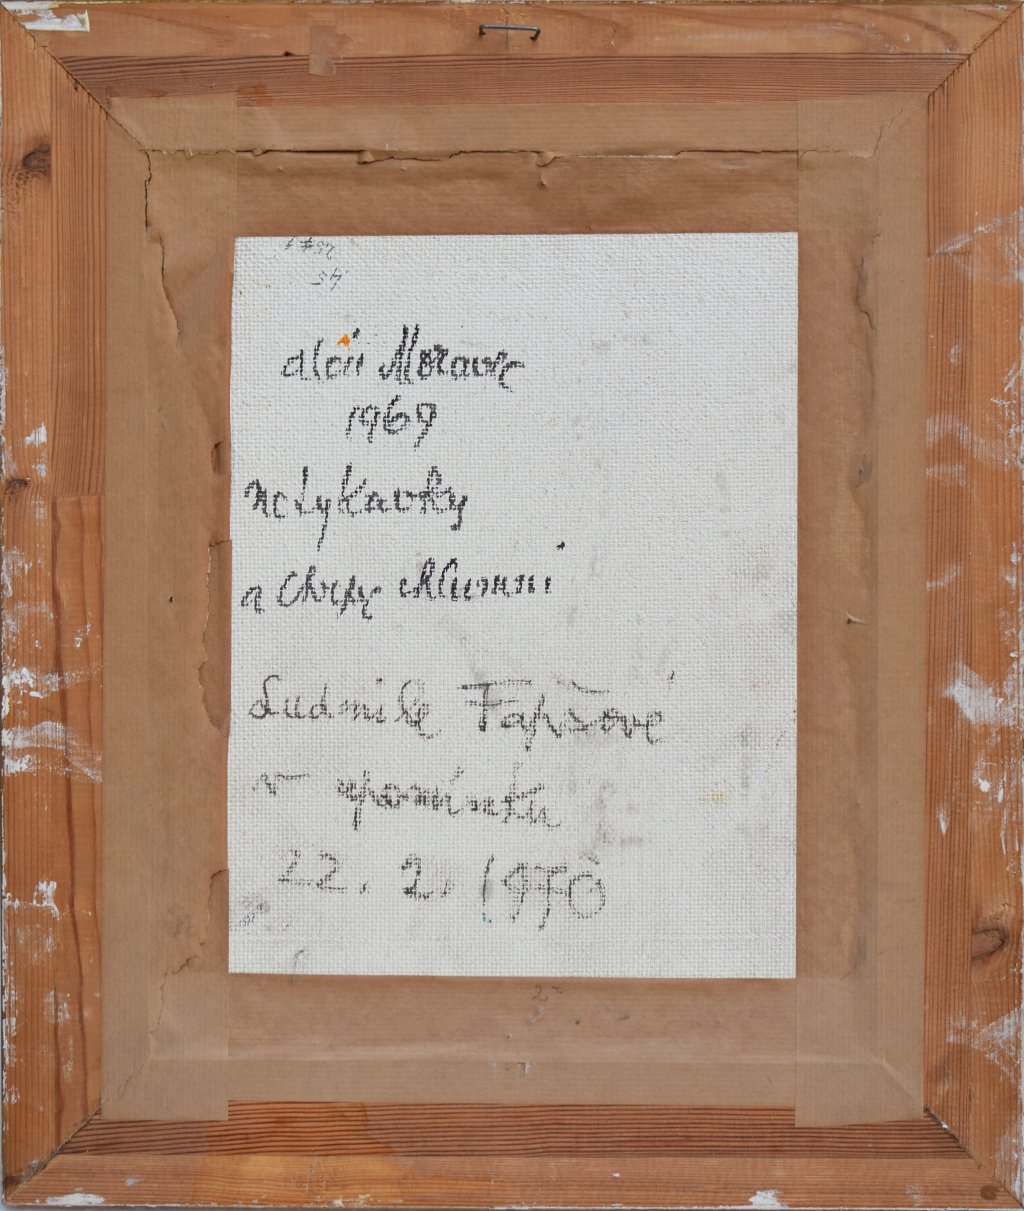 Alois Moravec
1969
Netykavky
a Chrpy
Ludmile Fapšové
v upomínku
22. 2. 1970